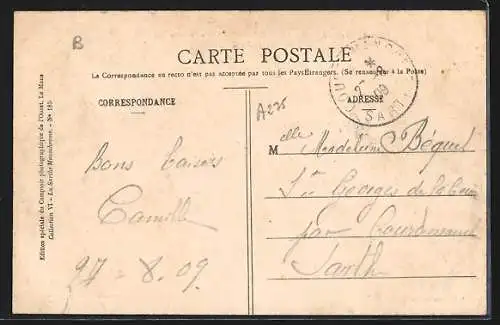 B
CARTE POSTALE
La Correspondance au recto n'est pas acceptée par tous les Pays Etrangers. (Se renseigner à la Poste)
CORRESPONDANCE
ADRESSE
A235
Bons baisers
Camille
27 - 8.09
Melle Madeleine Béquet
St Georges de la
par
Sarthe
SART
09
Edition spéciale du Comptoir photographique de l'Ouest, Le Mans
Collection VI - La Sarthe - N° 185